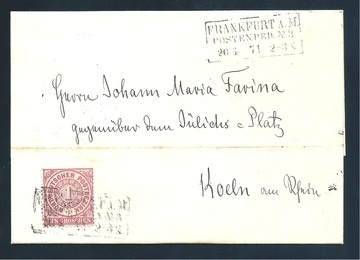 FRANKFURT A.M
POSTEXPED. № 3
26 4 71 2-3 N
Herrn Johann Maria Farina
gegenüber dem Jülichs-Platz
Koeln am Rhein
NORDDEUTSCHER POSTBEZIRK
1
EIN GROSCHEN
T A.M